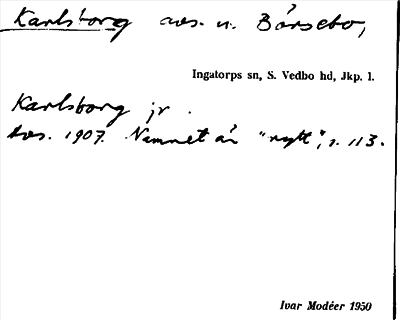 Karlsborg avs. u. Bårsebo,
Ingatorps sn, S. Vedbo hd, Jkp. l.
Karlsborg jr.
1907. Namnet är "nytt", s. 113.
Ivar Modéer 1950